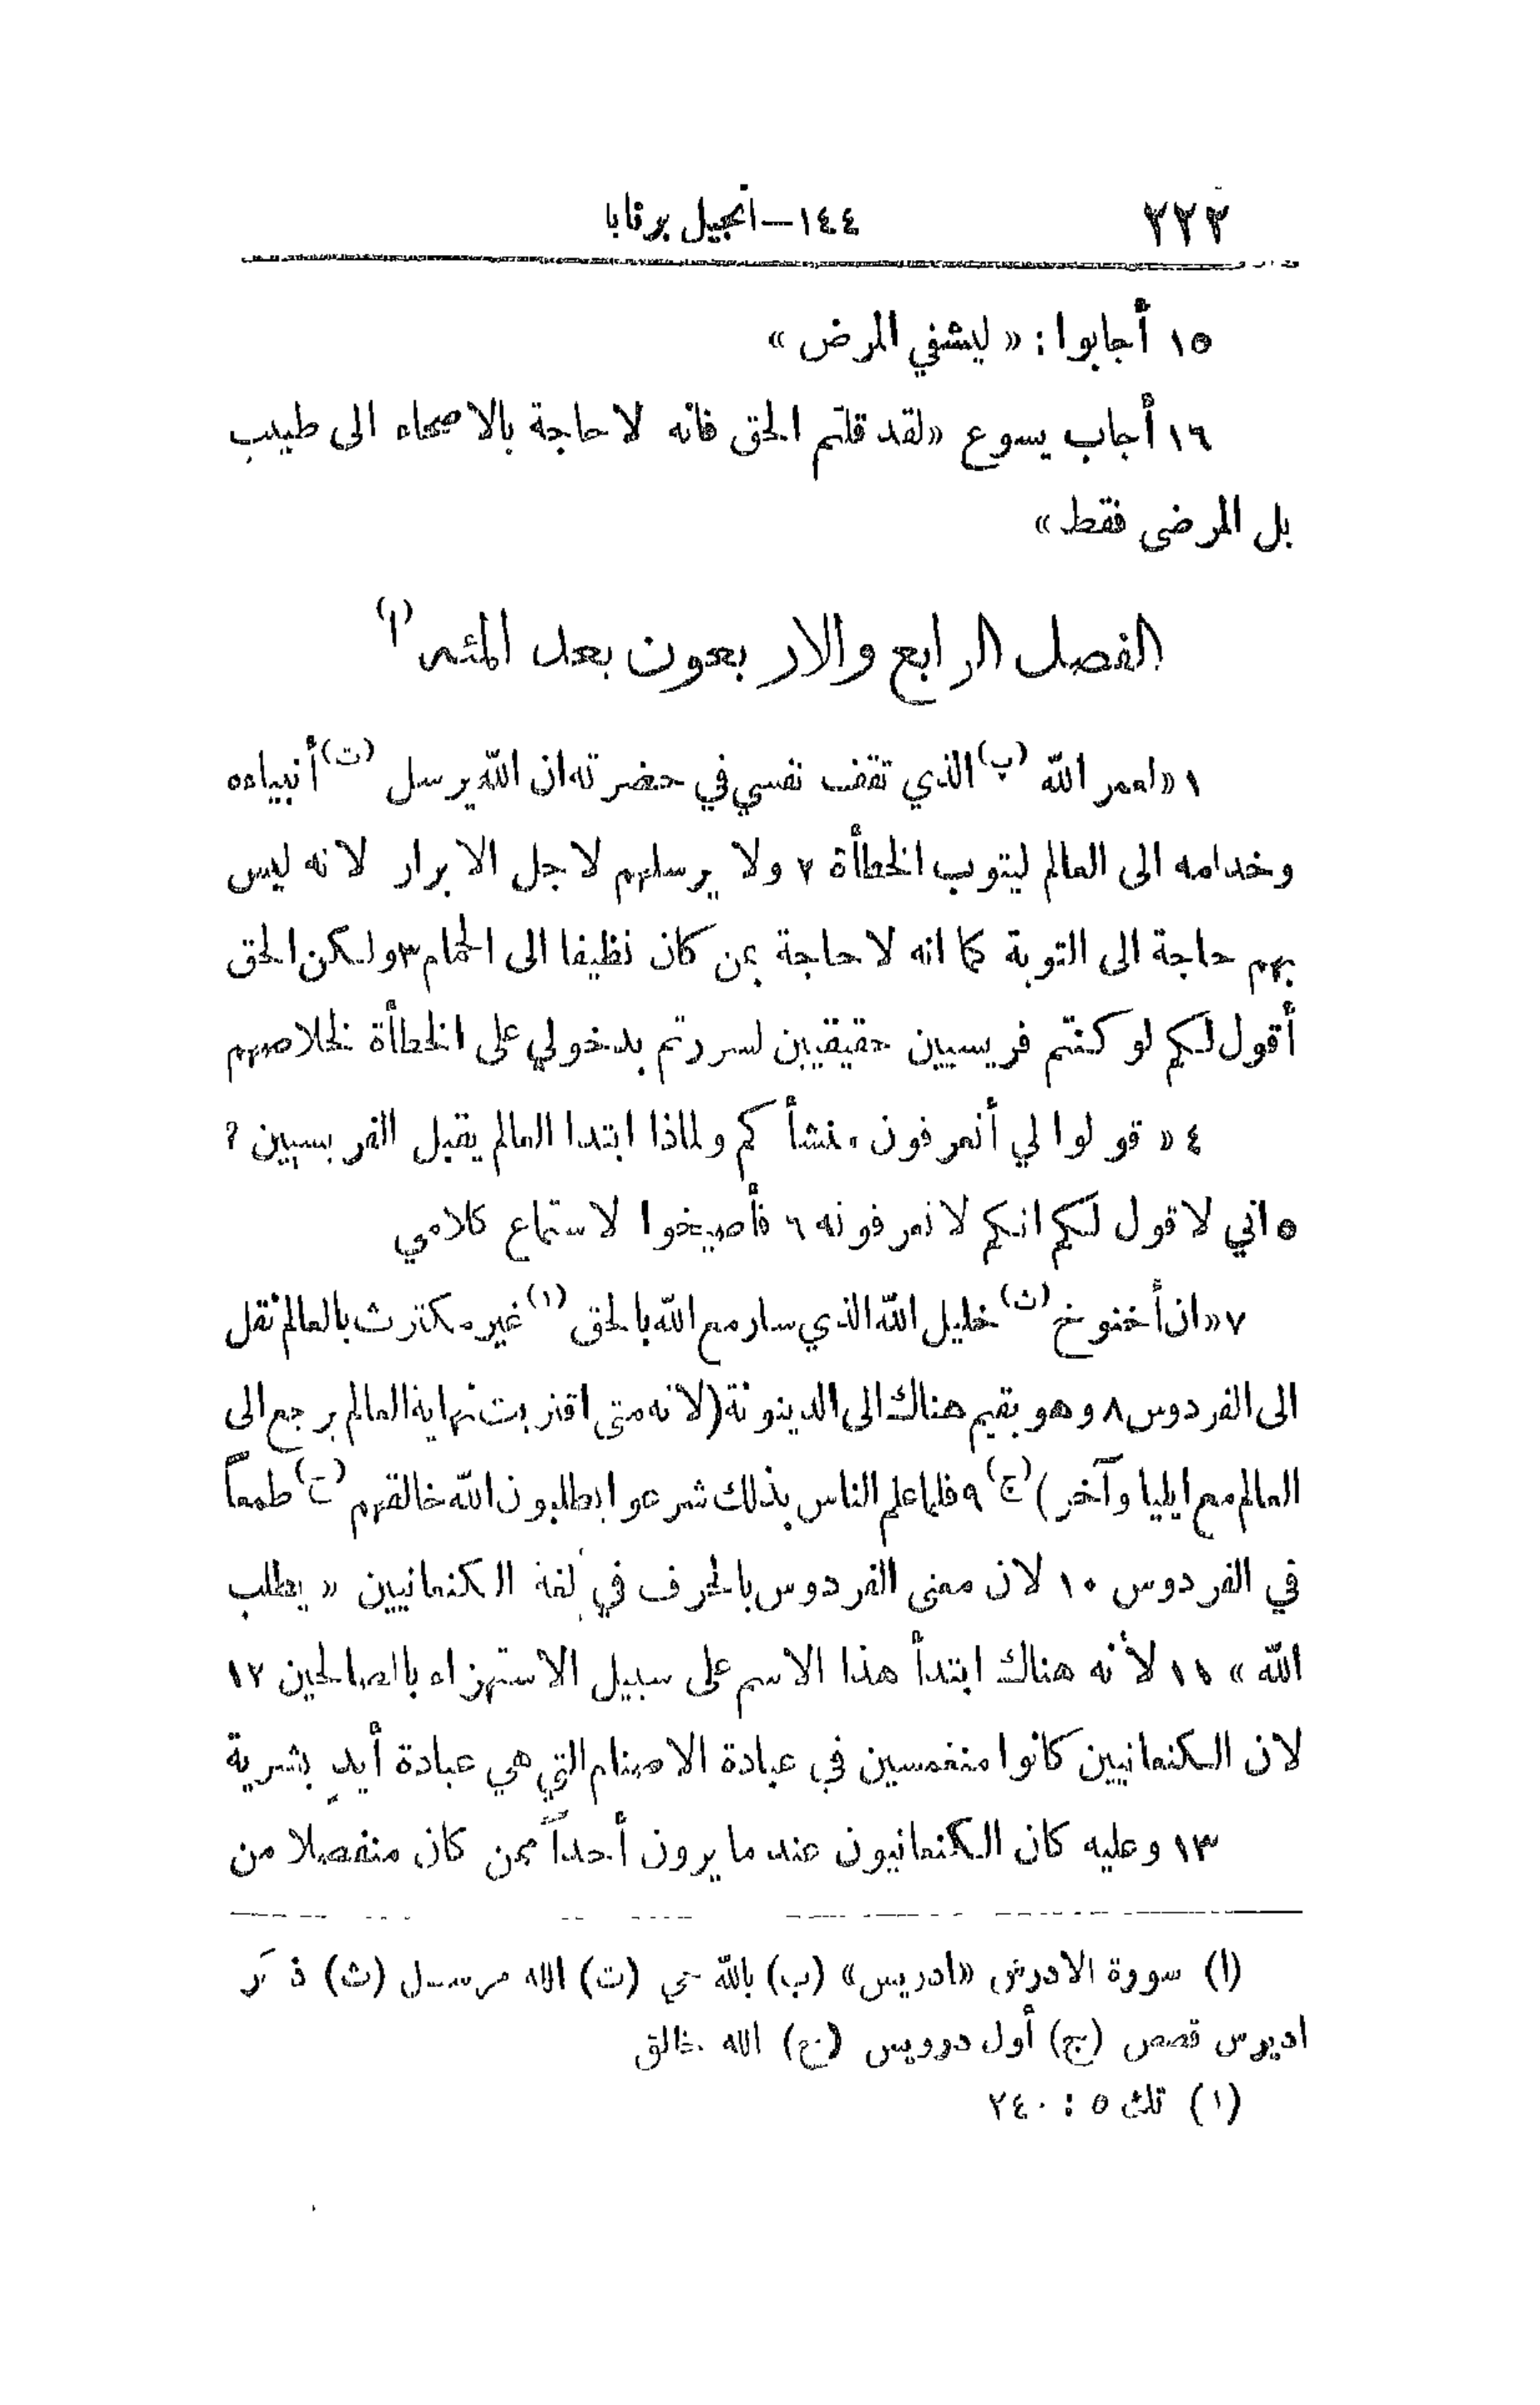 ٢٢٢ ١٤٤—انجيل برنابا
١٥ أجابوا: « ليشفي المرض »
١٦ أجاب يسوع «لقد قلتم الحق فانه لا حاجة بالاصحاء الى طبيب
بل المرضى فقط »
الفصل الرابع والاربعون بعد المئه (ا)
١ «لعمر الله (ب) الذي تقف نفسي في حضرته ان الله يرسل (ت) أنبياءه
وخدامه الى العالم ليتوب الخطأة ٢ ولا يرسلهم لاجل الابرار لانه ليس
بهم حاجة الى التوبة كما انه لا حاجة بمن كان نظيفا الى الحمام ٣ ولكن الحق
أقول لكم لو كنتم فريسيين حقيقيين لسررتم بدخولي على الخطأة لخلاصهم
٤ « قولوا لي أتعرفون منشأكم ولماذا ابتدا العالم يقبل الفريسيين ؟
٥ اني لاقول لكم انكم لا تعرفونه ٦ فأصيخوا لاستماع كلامي
٧ «ان أخنوخ (ث) خليل الله الذي سار مع الله بالحق (١) غير مكترث بالعالم نقل
الى الفردوس ٨ وهو يقيم هناك الى الدينونة (لانه متى اقتربت نهاية العالم يرجع الى
العالم مع ايليا وآخر ) (ج) ٩ فلما علم الناس بذلك شرعوا يطلبون الله خالقهم (ح) طمعاً
في الفردوس ١٠ لان معنى الفردوس بالحرف في لغة الكنعانيين « يطلب
الله » ١١ لأنه هناك ابتدأ هذا الاسم على سبيل الاستهزاء بالصالحين ١٢
لان الكنعانيين كانوا منغمسين في عبادة الاصنام التي هي عبادة أيدٍ بشرية
١٣ وعليه كان الكنعانيون عند ما يرون أحداً ممن كان منفصلا من
(ا) سورة الادرش «ادريس» (ب) بالله حي (ت) الله مرسل (ث) ذكر
اديرس قصص (ج) أول درويس (ح) الله خالق
(١) تك ٥ : ٢٤٠